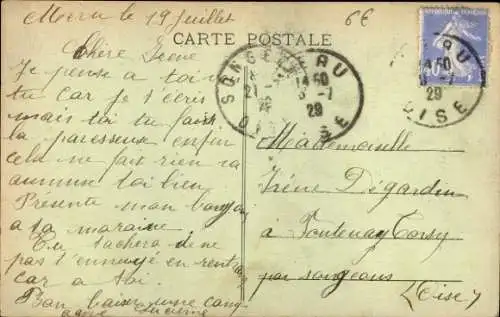 Meru le 19 Juillet
6€
CARTE POSTALE
Chère Irène
Je pense a toi
tu car je t'ecris
mais toi tu fais
la paresseuse enfin
cela ne fait rien
toi bien
Presente mon bonjour
a ta maraine
Tu tachera de ne
pas t'ennuyé en
car a toi
Bon baiser une
Lucienne
SONGEONS
OISE
29
Mademoiselle
Irène Dégardin
à Fontenay Torcy
par songeons
(Oise)